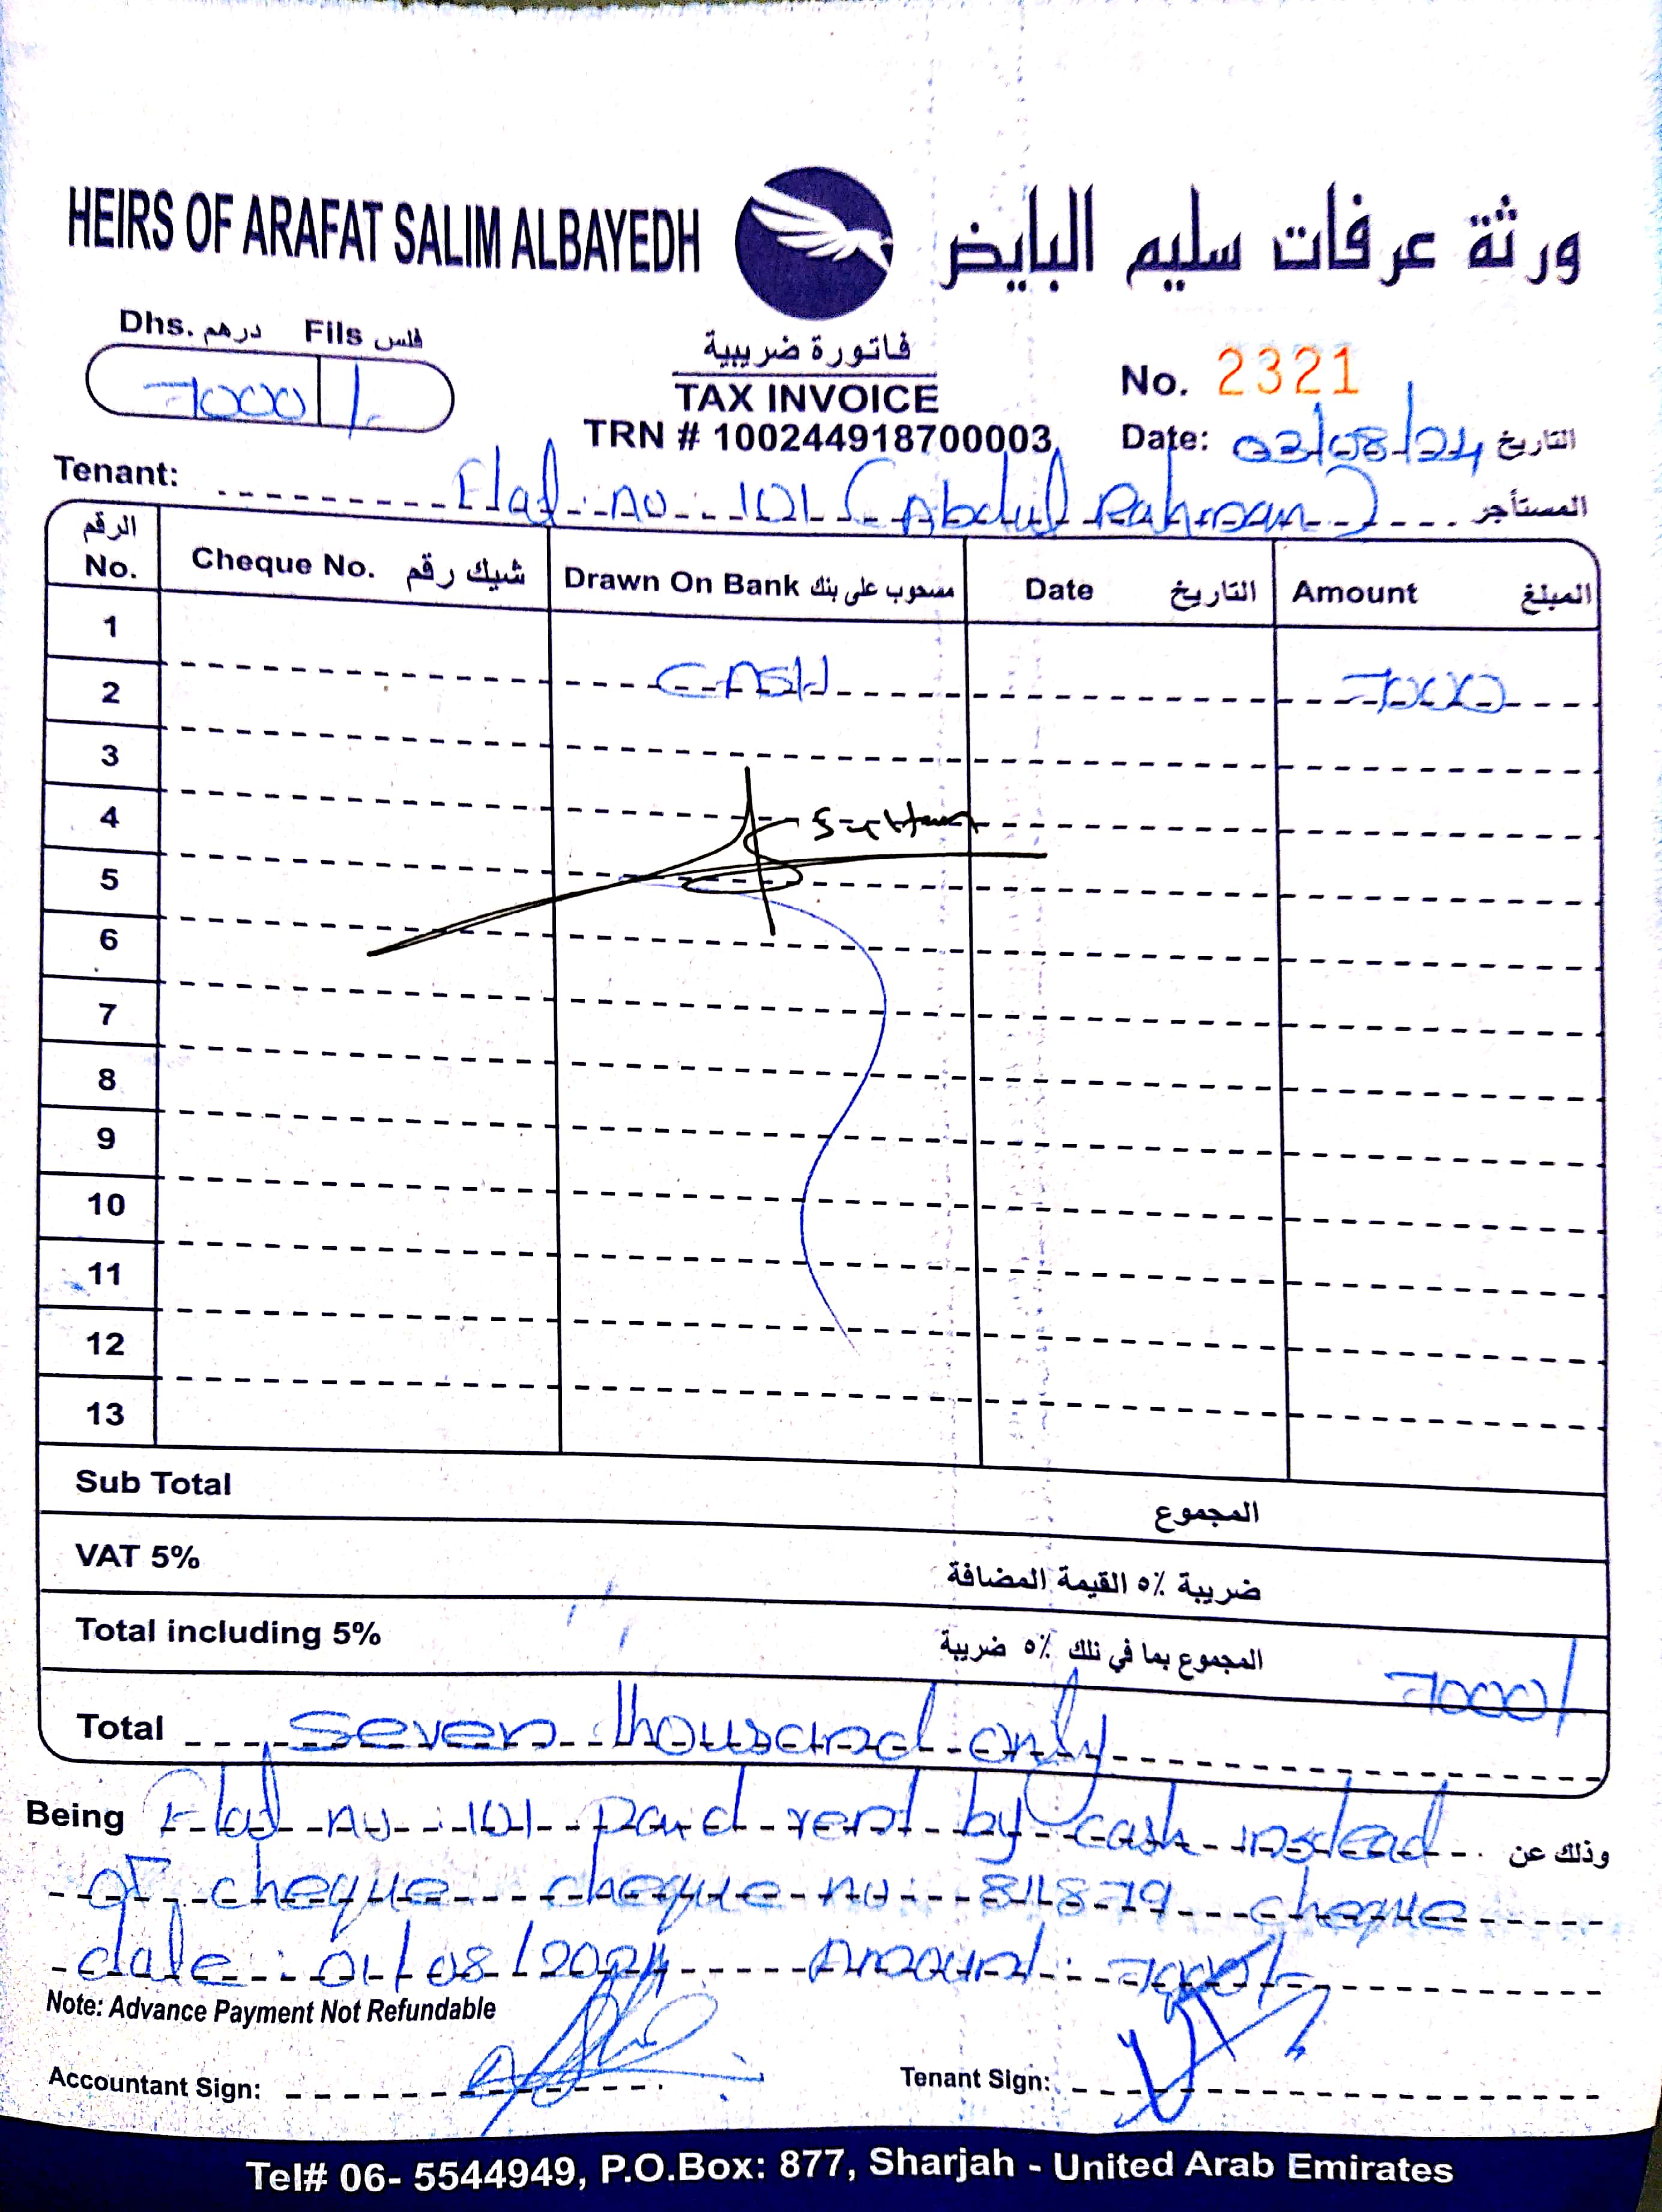 HEIRS OF ARAFAT SALIM ALBAYEDH ورثة عرفات سليم البايض
Dhs. درهم Fils فلس
7000 /-
فاتورة ضريبية
TAX INVOICE
TRN # 100244918700003
No. 2321
Date: 03/08/24 التاريخ
Tenant: Flat no : 101 (Abdul Rahman) المستأجر
الرقم No. Cheque No. شيك رقم Drawn On Bank مسحوب على بنك Date التاريخ Amount المبلغ
1
2 CASH 7000
3
4
5
6
7
8
9
10
11
12
13
Sub Total المجموع
VAT 5% ضريبة ٥٪ القيمة المضافة
Total including 5% المجموع بما في ذلك ٥٪ ضريبة 7000/
Total Seven thousand only
Being Flat no : 101 paid rent by cash instead وذلك عن
of cheque cheque no : 811879 cheque
date : 01/08/2024 Amount : 7000/-
Note: Advance Payment Not Refundable
Accountant Sign: Tenant Sign:
Tel# 06- 5544949, P.O.Box: 877, Sharjah - United Arab Emirates